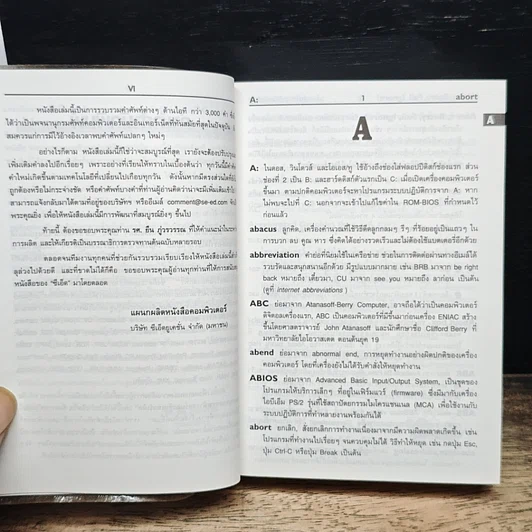 VI
หนังสือเล่มนี้เป็นการรวบรวมคำศัพท์ต่างๆ ด้านไอที กว่า 3,000 คำ
ได้ว่าเป็นพจนานุกรมศัพท์คอมพิวเตอร์และอินเทอร์เน็ตที่ทันสมัยที่สุดในปัจจุบัน
สมควรแก่การมีไว้อ้างอิงเวลาพบคำศัพท์แปลกๆ ใหม่ๆ
อย่างไรก็ตาม หนังสือเล่มนี้ก็ใช่ว่าจะสมบูรณ์ที่สุด เรายังจะต้องปรับปรุง
เพิ่มเติมคำลงไปอีกเรื่อยๆ เพราะอย่างที่เรียนให้ทราบในเบื้องต้นว่า ทุกวันนี้มีคำ
คำใหม่เกิดขึ้นตามเทคโนโลยีที่เปลี่ยนไปเกือบทุกวัน ดังนั้นหากมีตรงส่วนใด
ถูกต้องหรือไม่กระจ่างชัด หรือคำศัพท์บางคำที่ท่านผู้อ่านคิดว่าน่าจะมีเพิ่มเติมเข้า
สามารถแจ้งกลับมาได้ตามที่อยู่ของบริษัท หรืออีเมล์ comment@se-ed.com
พระคุณยิ่ง เพื่อให้หนังสือเล่มนี้มีการพัฒนาที่สมบูรณ์ยิ่งๆ ขึ้นไป
ท้ายนี้ ต้องขอขอบพระคุณท่าน รศ. ยืน ภู่วรวรรณ ที่ให้คำแนะนำใน
การผลิต และให้เกียรติเป็นบรรณาธิการตรวจทานต้นฉบับหลายรอบ
ตลอดจนทีมงานทุกคนที่ช่วยกันรวบรวมเรียบเรียงให้หนังสือเล่มนี้
ลุล่วงไปด้วยดี และที่ขาดไม่ได้ก็คือ ขอขอบพระคุณผู้อ่านทุกท่านที่ให้การ
หนังสือของ "ซีเอ็ด" มาโดยตลอด
แผนกผลิตหนังสือคอมพิวเตอร์
บริษัท ซีเอ็ดยูเคชั่น จำกัด (มหาชน)
A: 1 abort
A
A
A: ในดอส, วินโดวส์ และโอเอส/ทู ใช้อ้างถึงช่องใส่ฟลอปปีดิสก์ช่องแรก ส่วน
ช่องที่ 2 เป็น B: และฮาร์ดดิสก์ตัวแรกเป็น C: เมื่อเปิดเครื่องคอมพิวเตอร์
ขึ้นมา ตามปกติคอมพิวเตอร์จะหาโปรแกรมระบบปฏิบัติการจาก A: หาก
ไม่พบจะไปที่ C: นอกจากจะเข้าไปแก้ไขค่าใน ROM-BIOS ที่กำหนดไว้
ก่อนแล้ว
abacus ลูกคิด, เครื่องคำนวณที่ใช้วิธีดีดลูกกลมๆ รีๆ ที่ร้อยอยู่เป็นแถวๆ ใน
การบวก ลบ คูณ หาร ซึ่งคิดได้อย่างรวดเร็วและไม่ต้องใช้แบตเตอรี่อีกด้วย
abbreviation คำย่อที่นิยมใช้ในเครือข่าย ช่วยในการติดต่อผ่านทางอีเมล์ได้
รวบรัดและสนุกสนานอีกด้วย มีรูปแบบมากมาย เช่น BRB มาจาก be right
back หมายถึง เดี๋ยวมา, CU มาจาก see you หมายถึง ลาก่อน เป็นต้น
(ดูที่ internet abbreviations)
ABC ย่อมาจาก Atanasoff-Berry Computer, อาจถือได้ว่าเป็นคอมพิวเตอร์
ดิจิตอลเครื่องแรก, ABC เป็นคอมพิวเตอร์ที่มีขึ้นมาก่อนเครื่อง ENIAC สร้าง
ขึ้นโดยศาสตราจารย์ John Atanasoff และนักศึกษาชื่อ Clifford Berry ที่
มหาวิทยาลัยไอโอวาสเตต ตอนต้นยุค 19
abend ย่อมาจาก abnormal end, การหยุดทำงานอย่างผิดปกติของเครื่อง
คอมพิวเตอร์ โดยที่เครื่องยังไม่ได้รับคำสั่งให้หยุดทำงาน
ABIOS ย่อมาจาก Advanced Basic Input/Output System, เป็นชุดของ
โปรแกรมให้บริการเล็กๆ ที่อยู่ในเฟิร์มแวร์ (firmware) ซึ่งมีมากับเครื่อง
ไอบีเอ็ม PS/2 รุ่นที่ใช้สถาปัตยกรรมไมโครแชนแนล (MCA) เพื่อใช้งานกับ
ระบบปฏิบัติการที่ทำหลายงานพร้อมกันได้
abort ยกเลิก, สั่งยกเลิกการทำงานเนื่องมาจากมีความผิดพลาดเกิดขึ้น, เช่น
โปรแกรมที่ทำงานไปเรื่อยๆ จนควบคุมไม่ได้ วิธีทำให้หยุด เช่น กดปุ่ม Esc,
ปุ่ม Ctrl-C หรือปุ่ม Break เป็นต้น